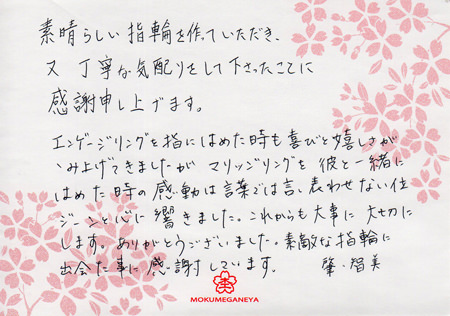 素晴らしい指輪を作っていただき、
又 丁寧な気配りをして下さったことに
感謝申し上げます。
エンゲージリングを指にはめた時も喜びと嬉しさが
こみ上げてきましたが マリッジリングを 彼と一緒に
はめた時の感動は言葉では言い表わせない位
ジーンと心に響きました。これからも大事に 大切に
します。ありがとうございました。素敵な指輪に
出会た事に感謝しています。 肇・智美
MOKUMEGANEYA